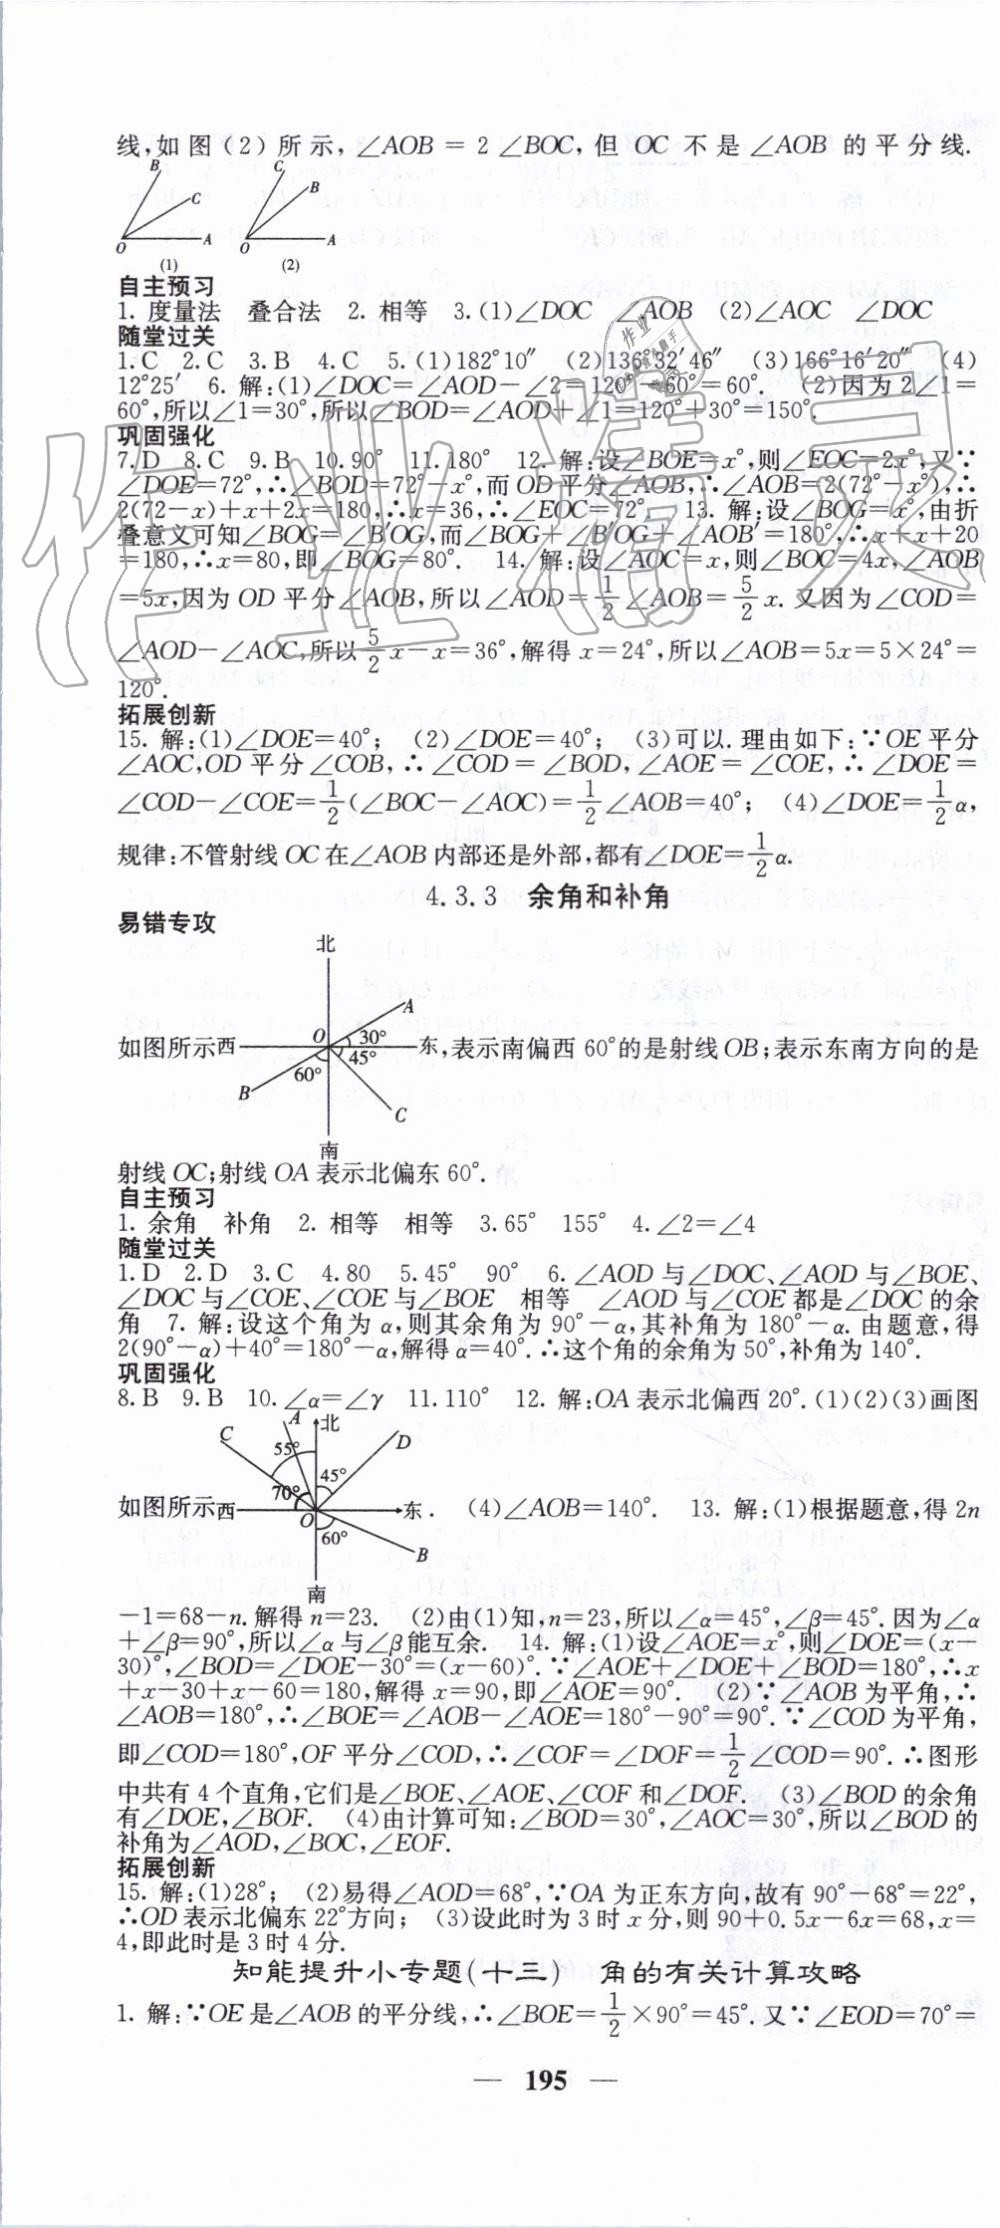 线,如图(2)所示,∠AOB=2∠BOC,但 OC 不是∠AOB 的平分线.
B C O A (1)
C B O A (2)
自主预习
1. 度量法 叠合法 2. 相等 3.(1)∠DOC ∠AOB (2)∠AOC ∠DOC
随堂过关
1.C 2.C 3.B 4.C 5.(1)182°10″ (2)136°32′46″ (3)166°16′20″ (4)
12°25′ 6. 解:(1)∠DOC=∠AOD-∠2=120°-60°=60°. (2)因为 2∠1=
60°,所以∠1=30°,所以∠BOD=∠AOD+∠1=120°+30°=150°.
巩固强化
7.D 8.C 9.B 10.90° 11.180° 12. 解:设∠BOE=x°,则∠EOC=2x°,又∵
∠DOE=72°,∴∠BOD=72°-x°,而 OD 平分∠AOB,∴∠AOB=2(72°-x°),∴
2(72-x)+x+2x=180,∴x=36,∴∠EOC=72°. 13. 解:设∠BOG=x°,由折
叠意义可知∠BOG=∠B′OG,而∠BOG+∠B′OG+∠AOB′=180°,∴x+x+20
=180,∴x=80,即∠BOG=80°. 14. 解:设∠AOC=x,则∠BOC=4x,∠AOB
=5x,因为 OD 平分∠AOB,所以∠AOD=1/2∠AOB=5/2x. 又因为∠COD=
∠AOD-∠AOC,所以5/2x-x=36°,解得 x=24°,所以∠AOB=5x=5×24°=
120°.
拓展创新
15. 解:(1)∠DOE=40°; (2)∠DOE=40°; (3)可以. 理由如下:∵OE 平分
∠AOC,OD 平分∠COB,∴∠COD=∠BOD,∠AOE=∠COE,∴∠DOE=
∠COD-∠COE=1/2(∠BOC-∠AOC)=1/2∠AOB=40°; (4)∠DOE=1/2α,
规律:不管射线 OC 在∠AOB 内部还是外部,都有∠DOE=1/2α.
4.3.3 余角和补角
易错专攻
北
A
O 30°
如图所示西 东,表示南偏西 60°的是射线 OB;表示东南方向的是
45°
60°
B C
南
射线 OC;射线 OA 表示北偏东 60°.
自主预习
1. 余角 补角 2. 相等 相等 3.65° 155° 4.∠2=∠4
随堂过关
1.D 2.D 3.C 4.80 5.45° 90° 6.∠AOD 与∠DOC、∠AOD 与∠BOE、
∠DOC 与∠COE、∠COE 与∠BOE 相等 ∠AOD 与∠COE 都是∠DOC 的余
角 7. 解:设这个角为 α,则其余角为 90°-α,其补角为 180°-α. 由题意,得
2(90°-α)+40°=180°-α,解得 α=40°.∴这个角的余角为 50°,补角为 140°.
巩固强化
8.B 9.B 10.∠α=∠γ 11.110° 12. 解:OA 表示北偏西 20°.(1)(2)(3)画图
C A 北 D
55° 45°
70°
如图所示西 O 东. (4)∠AOB=140°. 13. 解:(1)根据题意,得 2n
60° B
南
-1=68-n. 解得 n=23. (2)由(1)知,n=23,所以∠α=45°,∠β=45°. 因为∠α
+∠β=90°,所以∠α 与∠β 能互余. 14. 解:(1)设∠AOE=x°,则∠DOE=(x-
30)°,∠BOD=∠DOE-30°=(x-60)°.∵∠AOE+∠DOE+∠BOD=180°,∴x
+x-30+x-60=180,解得 x=90,即∠AOE=90°. (2)∵∠AOB 为平角,∴
∠AOB=180°,∴∠BOE=∠AOB-∠AOE=180°-90°=90°.∵∠COD 为平角,
即∠COD=180°,OF 平分∠COD,∴∠COF=∠DOF=1/2∠COD=90°.∴图形
中共有 4 个直角,它们是∠BOE、∠AOE、∠COF 和∠DOF. (3)∠BOD 的余角
有∠DOE,∠BOF. (4)由计算可知:∠BOD=30°,∠AOC=30°,所以∠BOD 的
补角为∠AOD,∠BOC,∠EOF.
拓展创新
15. 解:(1)28°; (2)易得∠AOD=68°,∵OA 为正东方向,故有 90°-68°=22°,
∴OD 表示北偏东 22°方向; (3)设此时为 3 时 x 分,则 90+0.5x-6x=68,x=
4,即此时是 3 时 4 分.
知能提升小专题(十三) 角的有关计算攻略
1. 解:∵OE 是∠AOB 的平分线,∴∠BOE=1/2×90°=45°. 又∵∠EOD=70°=
— 195 —
作业精灵